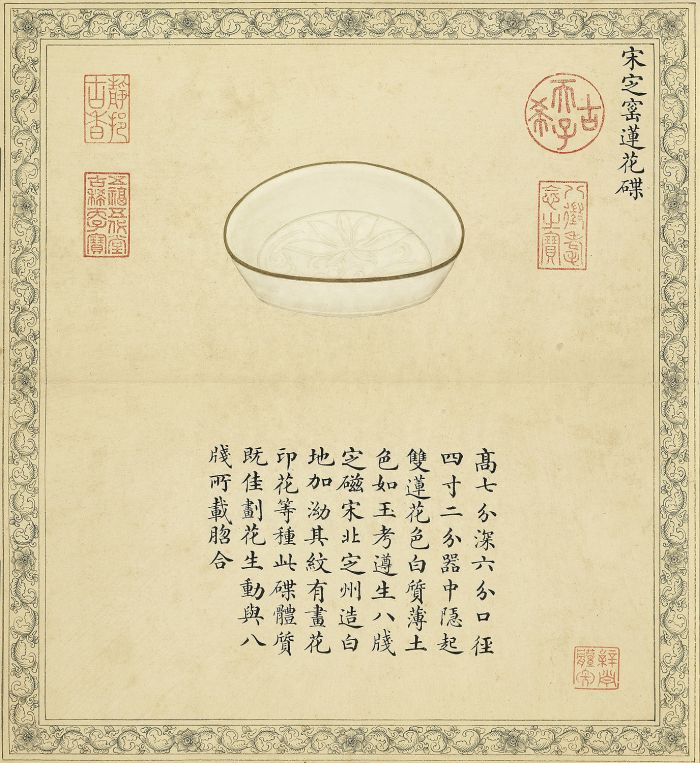 宋㝎窰蓮花碟
古希天子
八徵耄
念之寶
髙七分深六分口徑
四寸二分器中隱起
雙蓮花色白質薄土
色如玉考遵生八牋
㝎磁宋北㝎州造白
地加泑其紋有畫花
印花等種此碟體質
既佳劃花生動與八
牋所載脗合
靜挹
古香
五福五代堂
古稀天子寶